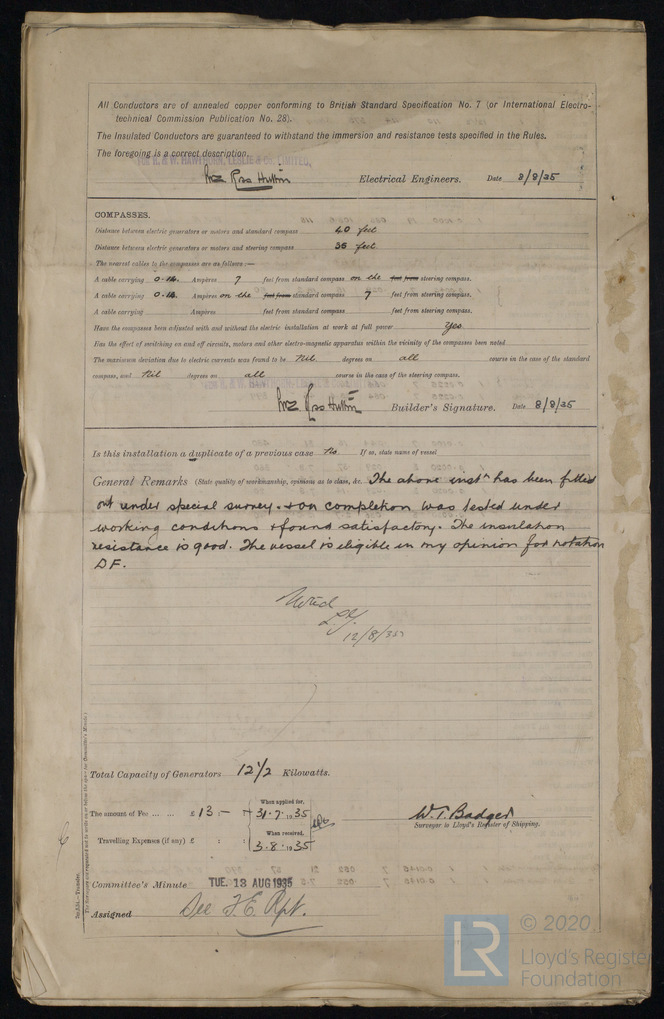 All Conductors are of annealed copper conforming to British Standard Specification No. 7 (or International Electro-
technical Commission Publication No. 28).
The Insulated Conductors are guaranteed to withstand the immersion and resistance tests specified in the Rules.
The foregoing is a correct description.
FOR R. & W. HAWTHORN, LESLIE & CO. LIMITED,
Electrical Engineers. Date 8/8/35
COMPASSES.
Distance between electric generators or motors and standard compass 40 feet
Distance between electric generators or motors and steering compass 36 feet.
The nearest cables to the compasses are as follows:—
A cable carrying 0.14 Ampères 7 feet from standard compass on the feet from steering compass.
A cable carrying 0.14 Ampères on the feet from standard compass 7 feet from steering compass.
A cable carrying Ampères feet from standard compass feet from steering compass.
Have the compasses been adjusted with and without the electric installation at work at full power Yes
Has the effect of switching on and off circuits, motors and other electro-magnetic apparatus within the vicinity of the compasses been noted
The maximum deviation due to electric currents was found to be Nil degrees on all course in the case of the standard
compass, and Nil degrees on all course in the case of the steering compass.
FOR R. & W. HAWTHORN, LESLIE & CO. LIMITED
Builder's Signature. Date 8/8/35
Is this installation a duplicate of a previous case No If so, state name of vessel
General Remarks (State quality of workmanship, opinions as to class, &c. The above instn has been fitted
out under special survey. + on completion was tested under
working conditions + found satisfactory. The insulation
resistance is good. The vessel is eligible in my opinion for notation
DF.
Noted
12/8/35
Total Capacity of Generators 12 1/2 Kilowatts.
The amount of Fee ... ... £ 13 : — When applied for, 31.7.1935
Travelling Expenses (if any) £ : : When received, 3.8.1935
W. T. Badger
Surveyor to Lloyd's Register of Shipping.
Committee's Minute TUE. 13 AUG 1935
Assigned See F.E. Rpt.
© 2020
LR
Lloyd's Register
Foundation